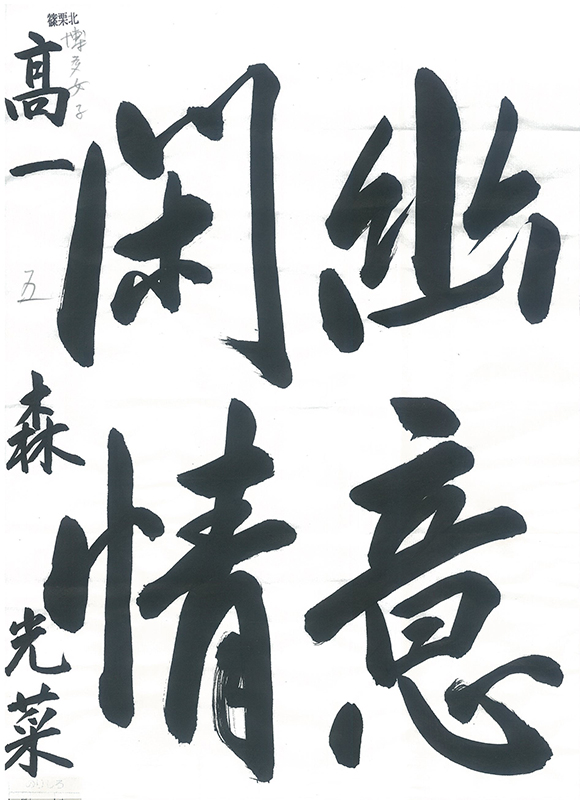 幽意
閑情
篠栗北
博多女子
高一 森 光菜
五